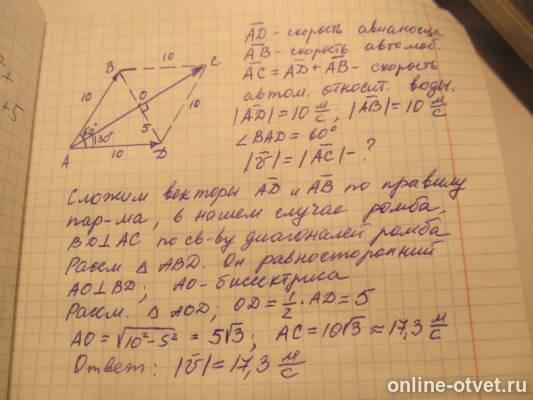 AD - скорость авианосца
AB - скорость автомоб.
AC = AD + AB - скорость
автом. относит. воды.
|AD| = 10 м/с, |AB| = 10 м/с
∠BAD = 60°
|v| = |AC| - ?
B 10 C
10 O 10
60° 5
30°
A 10 D
+5
Сложим векторы AD и AB по правилу
пар-ма, в нашем случае ромба.
BD⊥AC по св-ву диагоналей ромба
Рассм △ ABD. Он равносторонний
AO⊥BD; AO - биссектриса
Рассм. △ AOD; OD = 1/2 · AD = 5
AO = √(10² - 5²) = 5√3; AC = 10√3 ≈ 17,3 м/с
Ответ: |v| = 17,3 м/с
online-otvet.ru